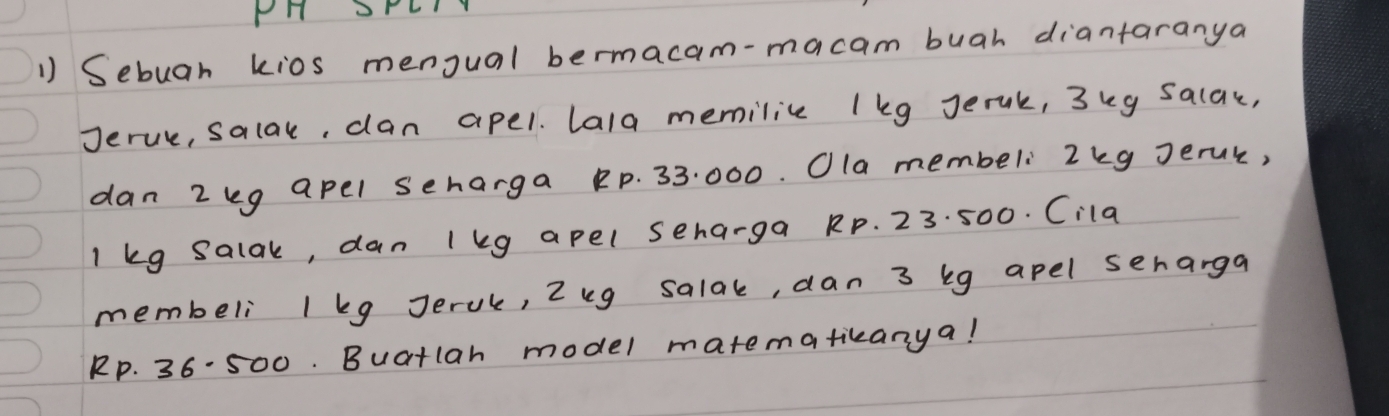 PH SPLTV
1) Sebuah kios menjual bermacam-macam buah diantaranya
Jeruk, salak, dan apel. Lala memilik 1 kg Jeruk, 3 kg salak,
dan 2 kg apel seharga Rp. 33.000. Ola membeli 2 kg Jeruk,
1 kg salak, dan 1 kg apel seharga Rp. 23.500. Cila
membeli 1 kg Jeruk, 2 kg salak, dan 3 kg apel seharga
Rp. 36.500. Buatlah model matematikanya!